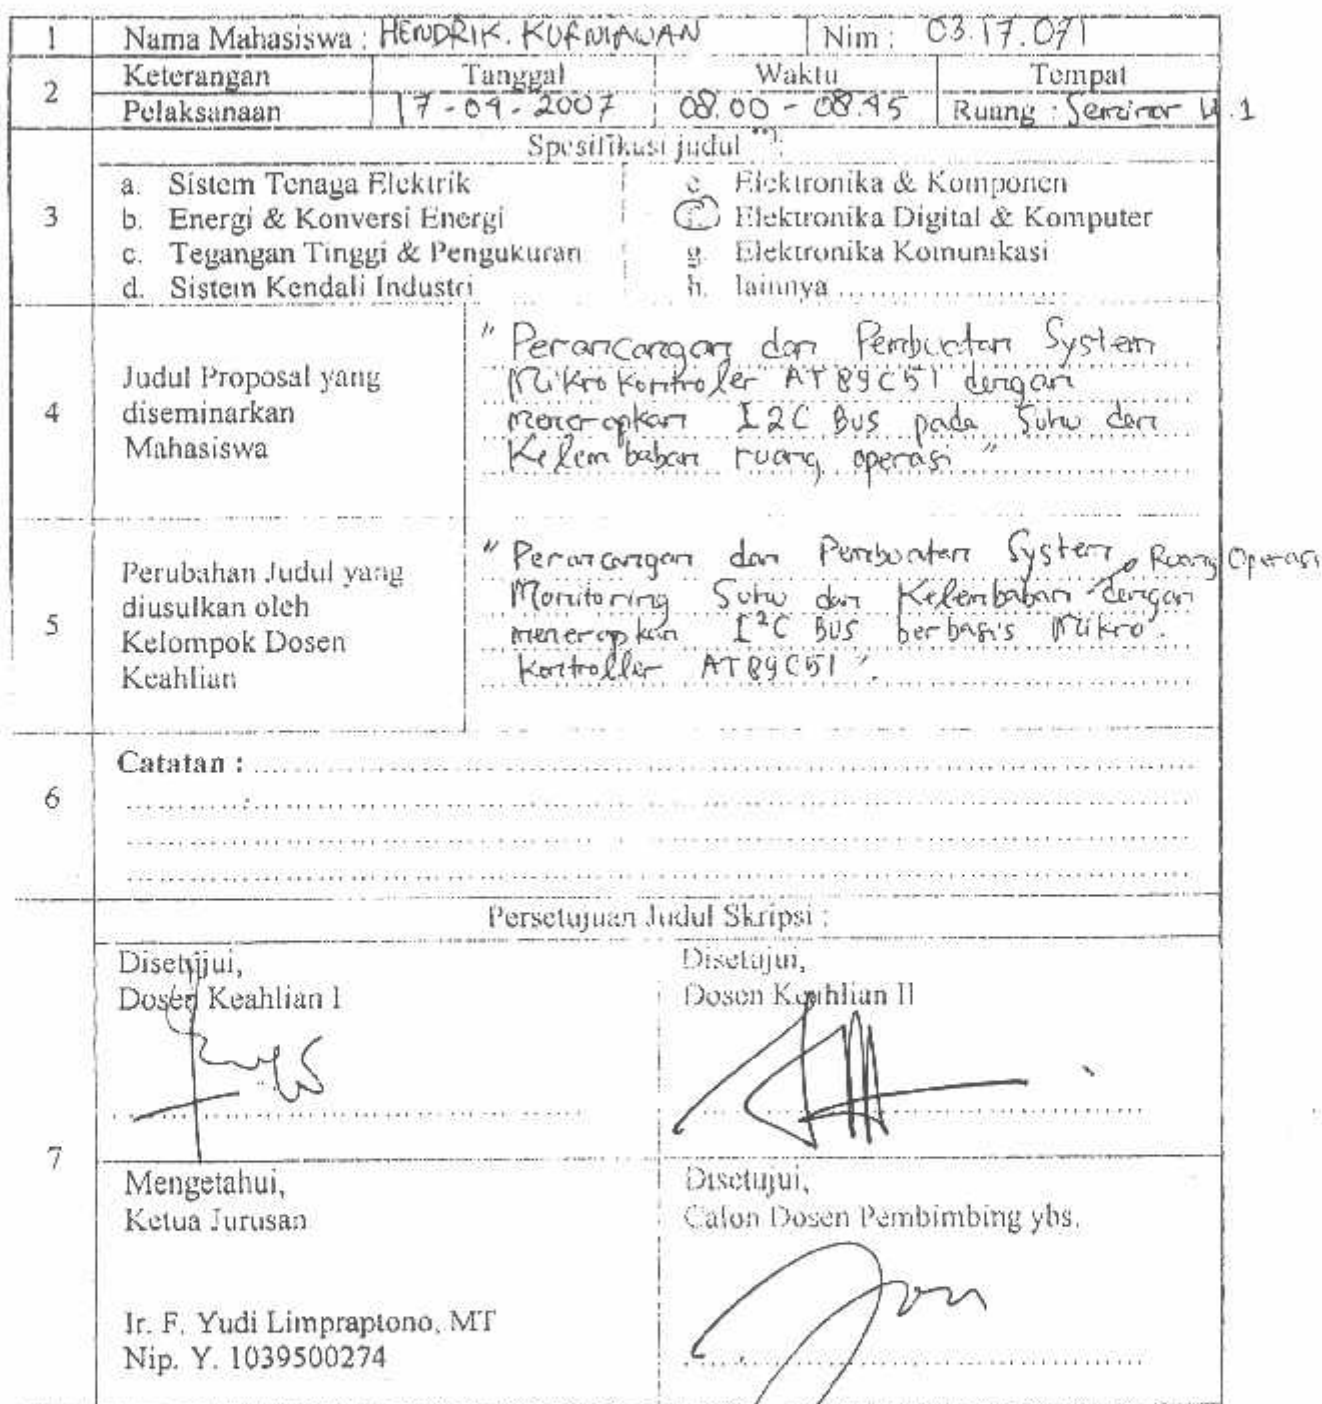 1 Nama Mahasiswa : HENDRIK. KURNIAWAN Nim : 03.17.071
2 Keterangan Tanggal Waktu Tempat
Pelaksanaan 17-04-2007 08.00 - 08.45 Ruang : Seminar Lt.1
Spesifikasi judul **):
3
a. Sistem Tenaga Elektrik
b. Energi & Konversi Energi
c. Tegangan Tinggi & Pengukuran
d. Sistem Kendali Industri
e. Elektronika & Komponen
f. Elektronika Digital & Komputer
g. Elektronika Komunikasi
h. lainnya ......................
4
Judul Proposal yang
diseminarkan
Mahasiswa
" Perancangan dan Pembuatan System
Mikrokontroler AT89C51 dengan
menerapkan I2C Bus pada Suhu dan
Kelembaban ruang operasi "
5
Perubahan Judul yang
diusulkan oleh
Kelompok Dosen
Keahlian
" Perancangan dan Pembuatan System
Ruang Operasi
Monitoring Suhu dan Kelembaban dengan
menerapkan I²C BUS berbasis Mikro
Kontroller AT89C51 ".
6
Catatan :
Persetujuan Judul Skripsi :
7
Disetujui,
Dosen Keahlian I
Disetujui,
Dosen Keahlian II
Mengetahui,
Ketua Jurusan
Ir. F. Yudi Limpraptono, MT
Nip. Y. 1039500274
Disetujui,
Calon Dosen Pembimbing ybs.